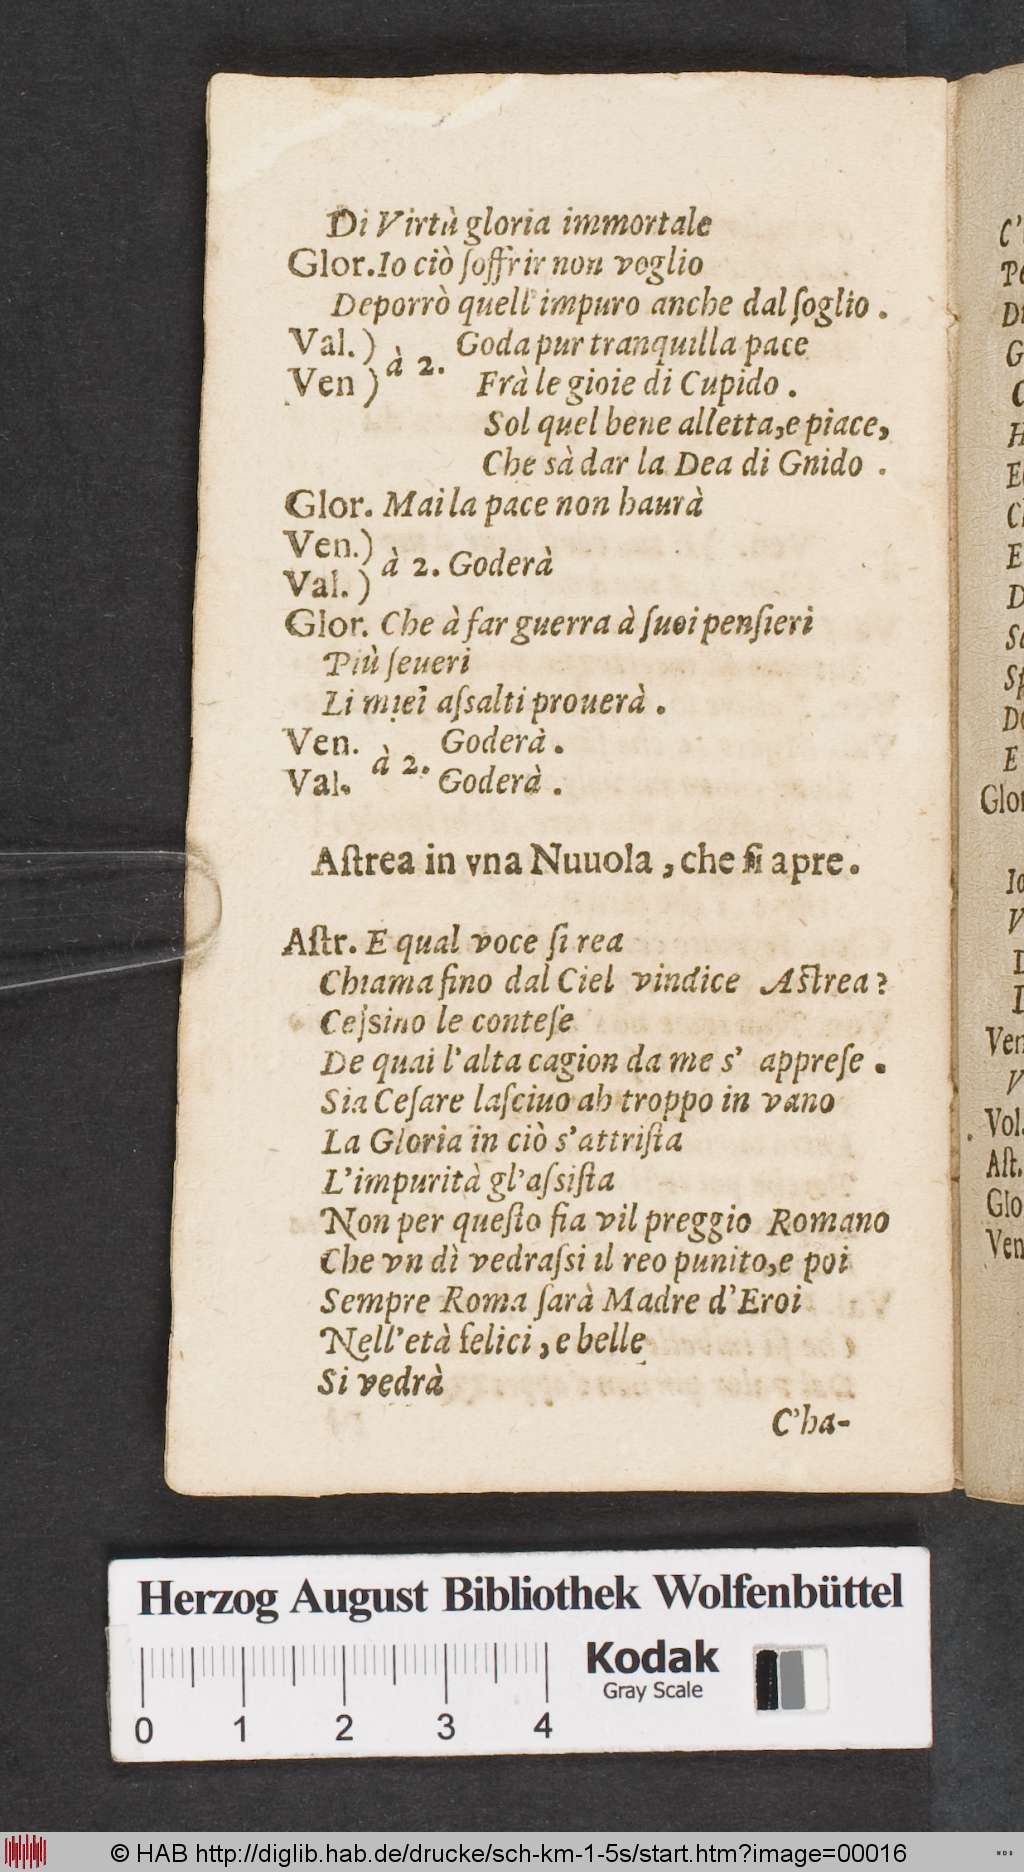 Di Virtù gloria immortale
Glor. Io ciò ſoffrir non voglio
Deporrò quell'impuro anche dal ſoglio .
Val. ) à 2. Goda pur tranquilla pace
Ven ) Frà le gioie di Cupido .
Sol quel bene alletta, e piace,
Che sà dar la Dea di Gnido .
Glor. Mai la pace non haurà
Ven.)
Val. ) à 2. Goderà
Glor. Che à far guerra à ſuoi penſieri
Più ſeueri
Li miei aſsalti prouerà .
Ven. à 2. Goderà .
Val. Goderà .
Aſtrea in vna Nuuola , che ſi apre .
Aſtr. E qual voce ſi rea
Chiama fino dal Ciel vindice Aſtrea ?
Ceſsino le conteſe
De quai l'alta cagion da me s' appreſe .
Sia Ceſare laſciuo ah troppo in vano
La Gloria in ciò s'attriſta
L'impurità gl'aſsiſta
Non per queſto fia vil preggio Romano
Che vn dì vedraſsi il reo punito, e poi
Sempre Roma ſarà Madre d'Eroi
Nell'età felici , e belle
Si vedrà
C'ha-
C'
G
H
E
D
E
Glor
V
Ven
V
Vol.
Aſt.
Glo
Ven
Herzog August Bibliothek Wolfenbüttel
Kodak
Gray Scale
0 1 2 3 4
© HAB http://diglib.hab.de/drucke/sch-km-1-5s/start.htm?image=00016